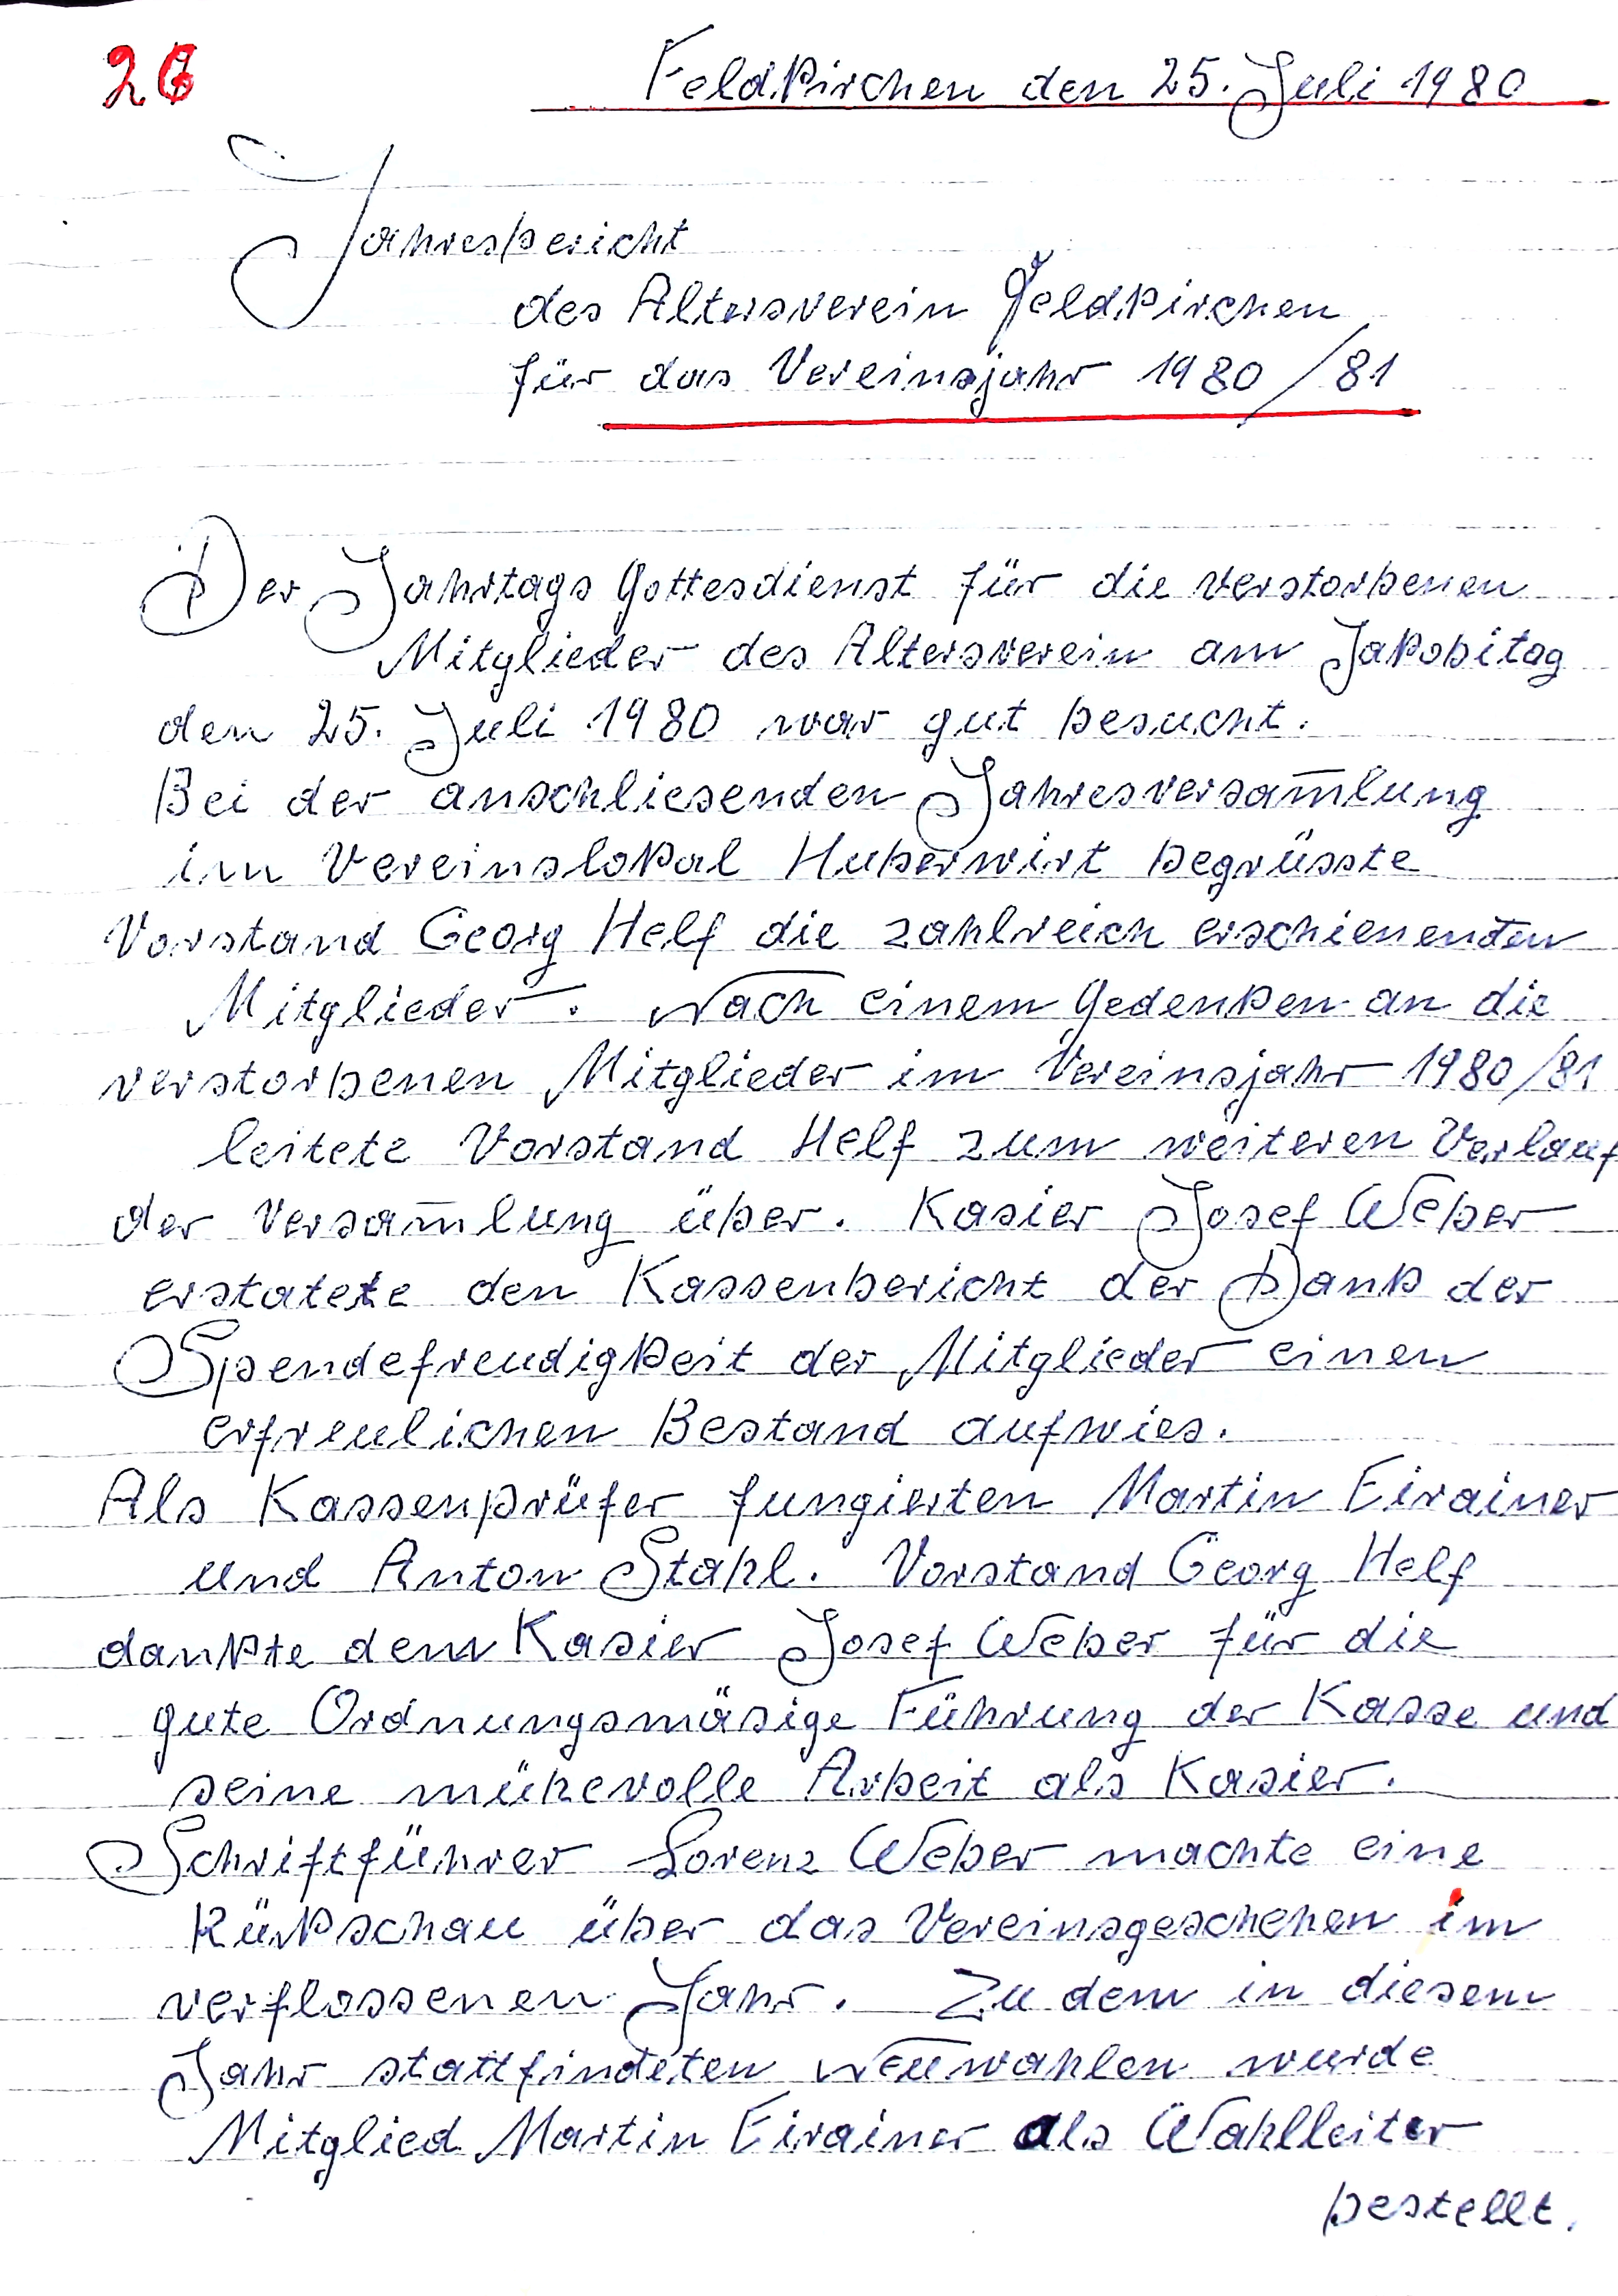 26
Feldkirchen den 25. Juli 1980
Jahresbericht
des Altersverein Feldkirchen
für das Vereinsjahr 1980/81
Der Jahrtags Gottesdienst für die verstorbenen
Mitglieder des Altersverein am Jakobitag
den 25. Juli 1980 war gut besucht.
Bei der anschliesenden Jahresversam̅lung
im Vereinslokal Huberwirt begrüsste
Vorstand Georg Helf die zahlreich erschienenden
Mitglieder. Nach einem Gedenken an die
verstorbenen Mitglieder im Vereinsjahr 1980/81
leitete Vorstand Helf zum weiteren Verlauf
der Versam̅lung über. Kasier Josef Weber
erstatete den Kassenbericht der Dank der
Spendefreudigkeit der Mitglieder einen
erfreulichen Bestand aufwies.
Als Kassenprüfer fungierten Martin Eirainer
und Anton Stahl. Vorstand Georg Helf
dankte dem Kasier Josef Weber für die
gute Ordnungsmäsige Führung der Kasse und
seine mühevolle Arbeit als Kasier.
Schriftführer Lorenz Weber machte eine
Rükschau über das Vereinsgeschehen im
verflossenen Jahr. Zu dem in diesem
Jahr stattfindeten Neuwahlen wurde
Mitglied Martin Eirainer als Wahlleiter
bestellt.